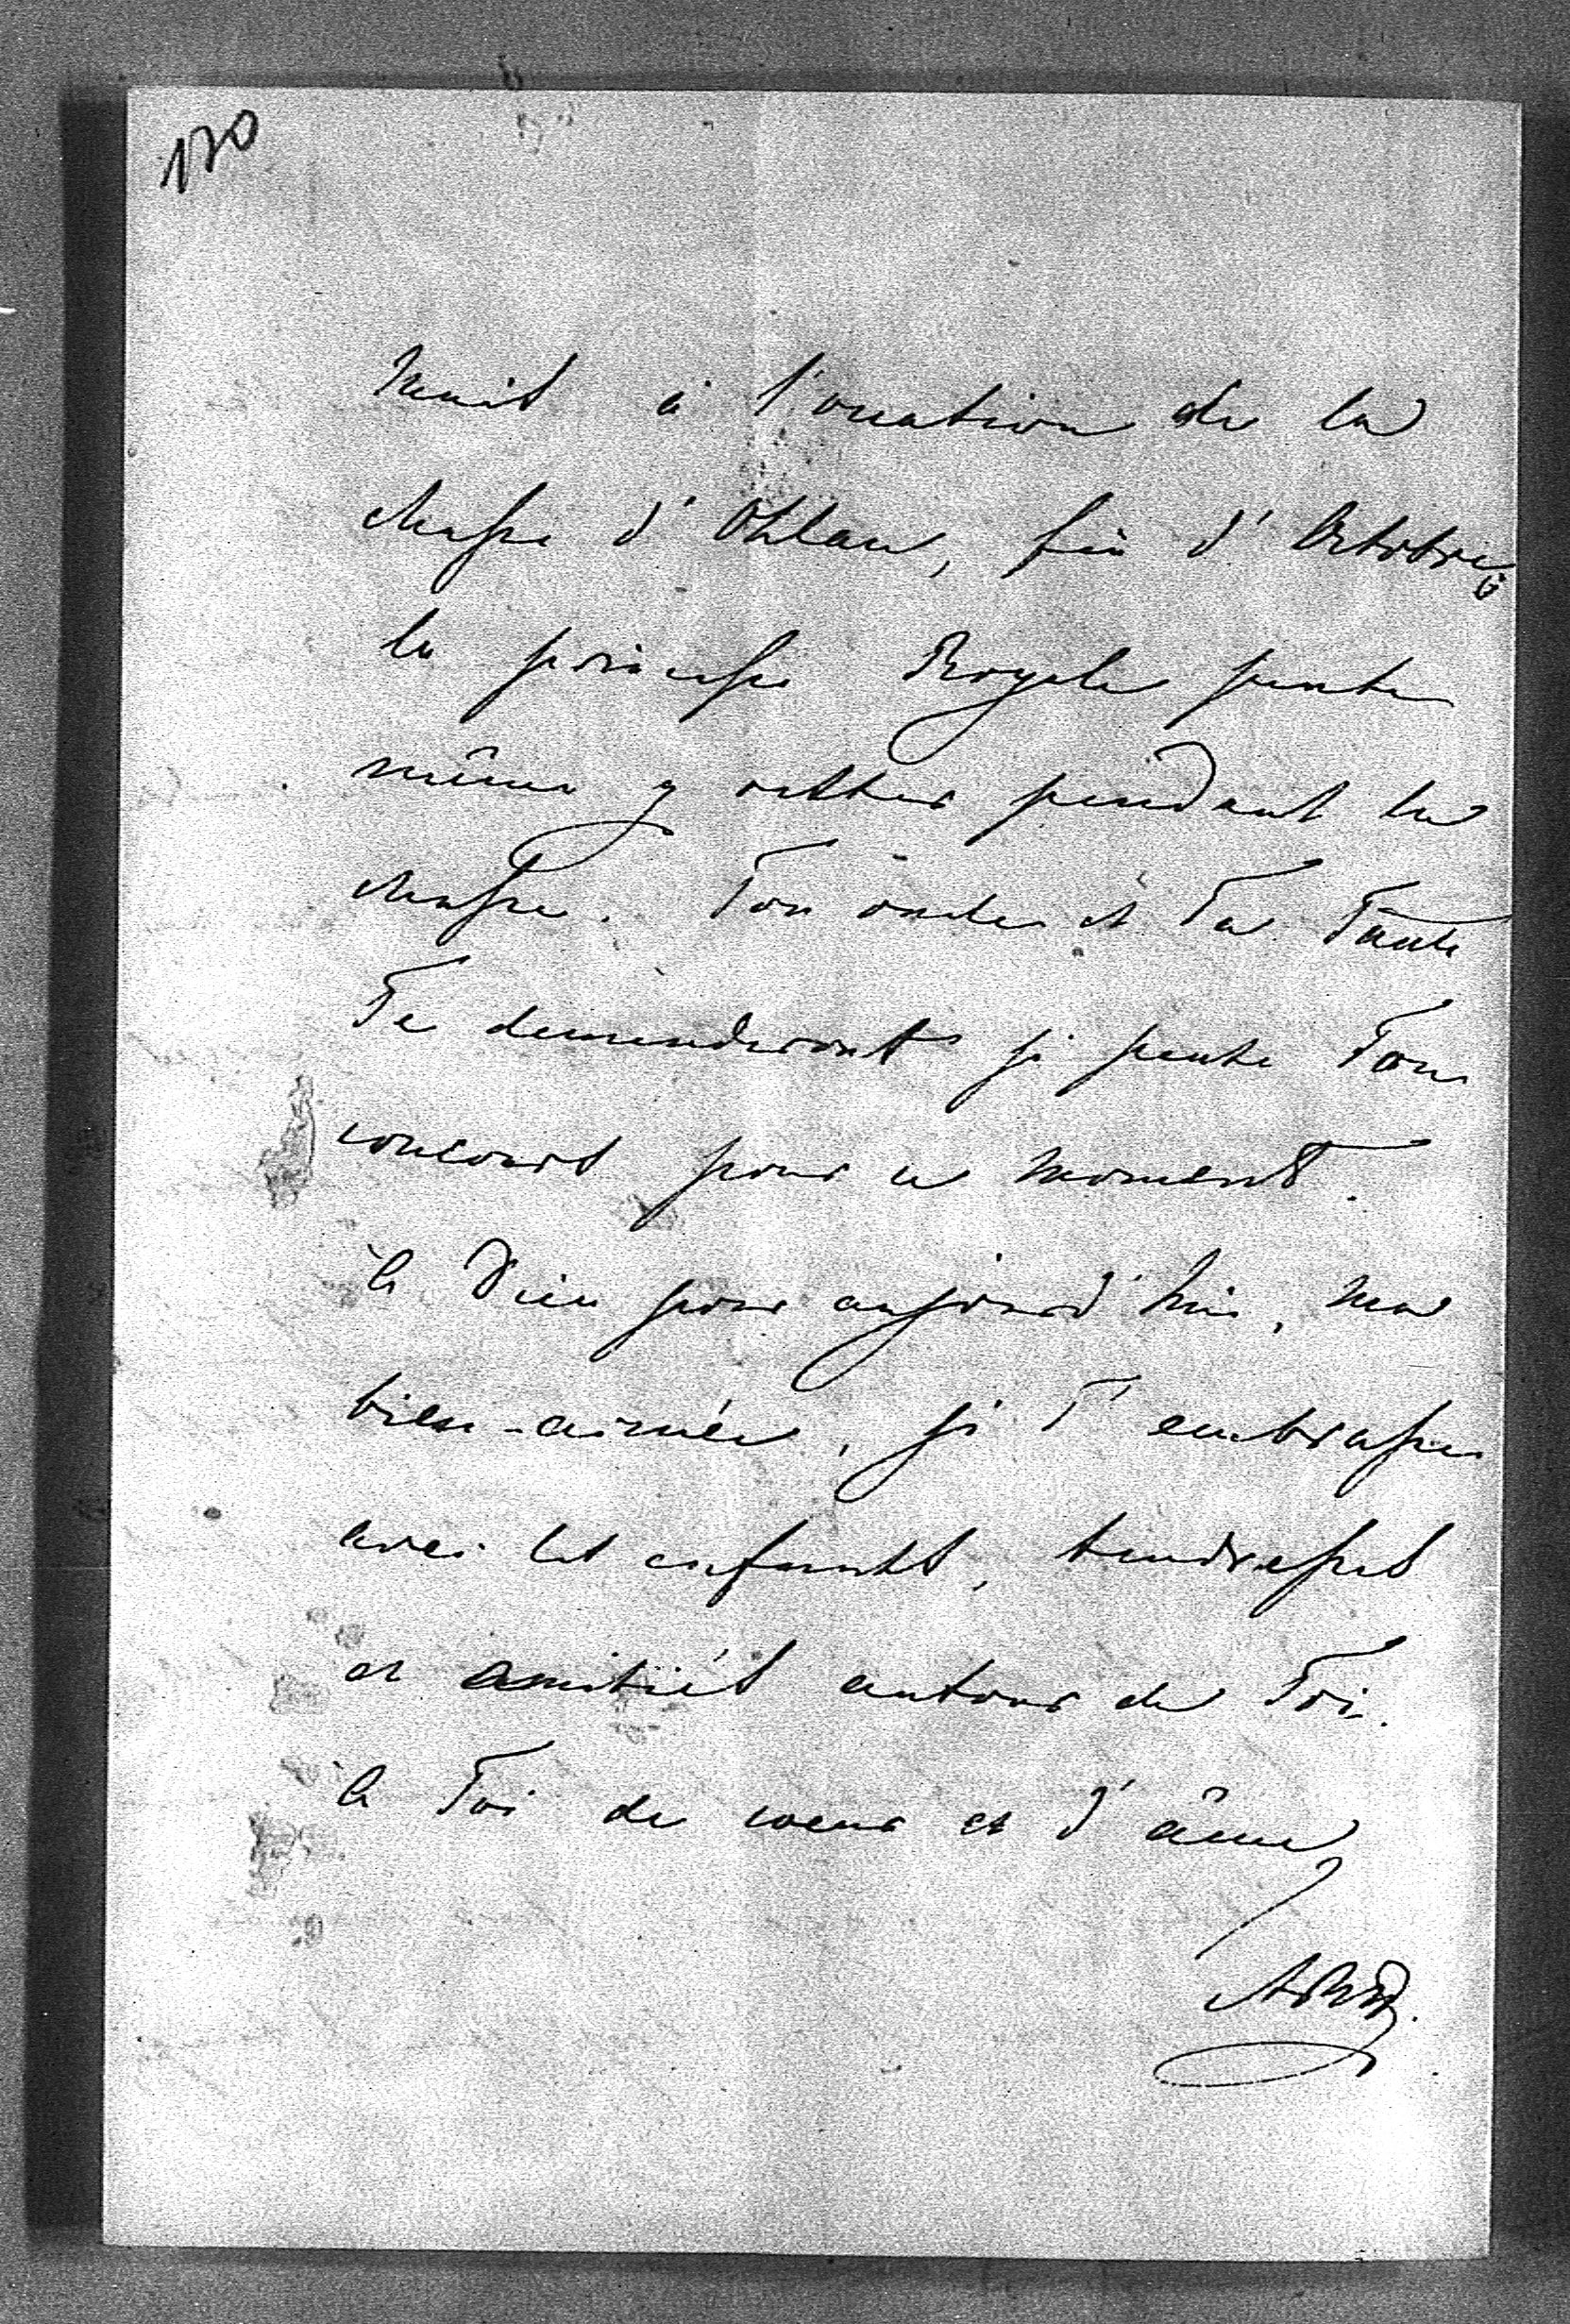 170
nuit à l'ocation de la
chasse d'Ohlau, fin d'Octobre,
la princesse Royale
même y rester pendant la
chasse. Ton oncle et Ta Tante
Te demanderont je pense Ton
concours pour ce moment.
à Dieu pour aujourd'hui, ma
bien-aimée, je T'embrasse
avec les enfants, tendresses
et amitiés autour de Toi.
à Toi de coeur et d'âme